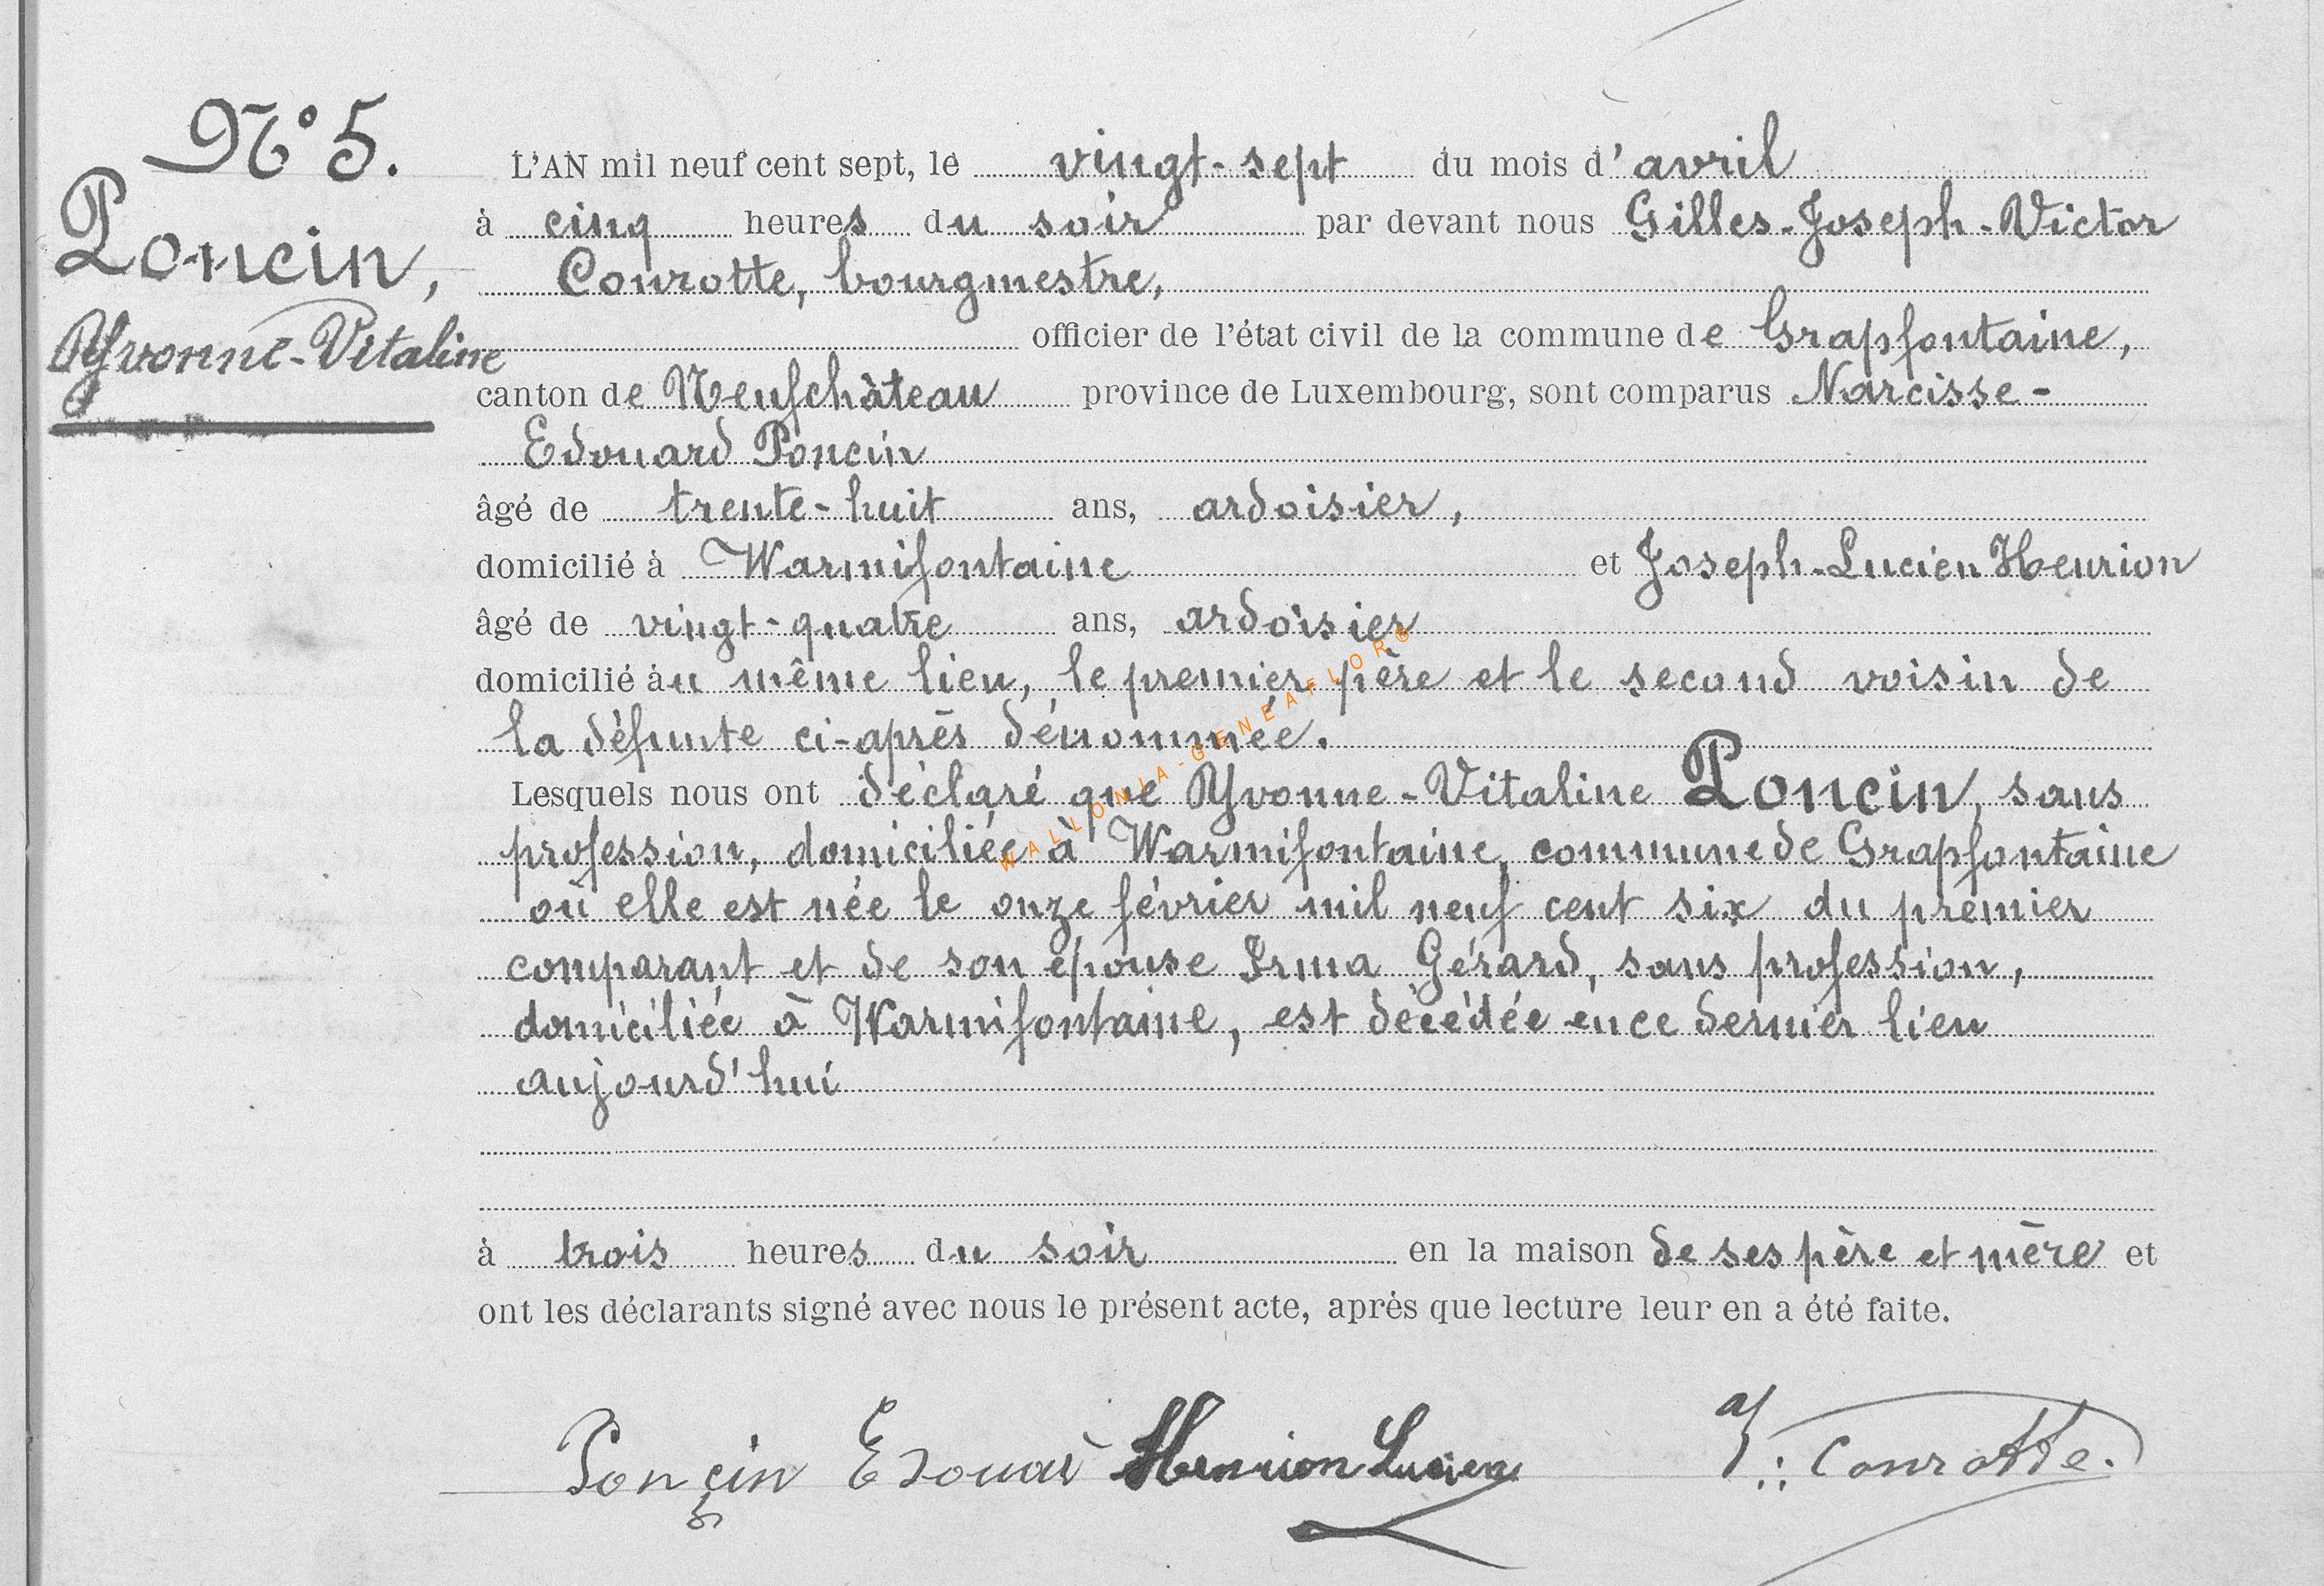 N° 5.
Poncin,
Yvonne-Vitaline
L'AN mil neuf cent sept, le vingt-sept du mois d'avril
à cinq heures du soir par devant nous Gilles-Joseph-Victor
Conrotte, bourgmestre,
officier de l'état civil de la commune de Grapfontaine,
canton de Neufchâteau province de Luxembourg, sont comparus Narcisse-
Edouard Poncin
âgé de trente-huit ans, ardoisier,
domicilié à Warmifontaine et Joseph-Lucien Henrion
âgé de vingt-quatre ans, ardoisier
domicilié au même lieu, le premier père et le second voisin de
la défunte ci-après dénommée.
Lesquels nous ont déclaré que Yvonne-Vitaline Poncin, sans
profession, domiciliée à Warmifontaine, commune de Grapfontaine
où elle est née le onze février mil neuf cent six du premier
comparant et de son épouse Irma Gérard, sans profession,
domiciliée à Warmifontaine, est décédée en ce dernier lieu
aujourd'hui
à trois heures du soir en la maison de ses père et mère et
ont les déclarants signé avec nous le présent acte, après que lecture leur en a été faite.
Ponçin Edouard Henrion Lucien Conrotte.
WALLONIA-GENEAFLOR®